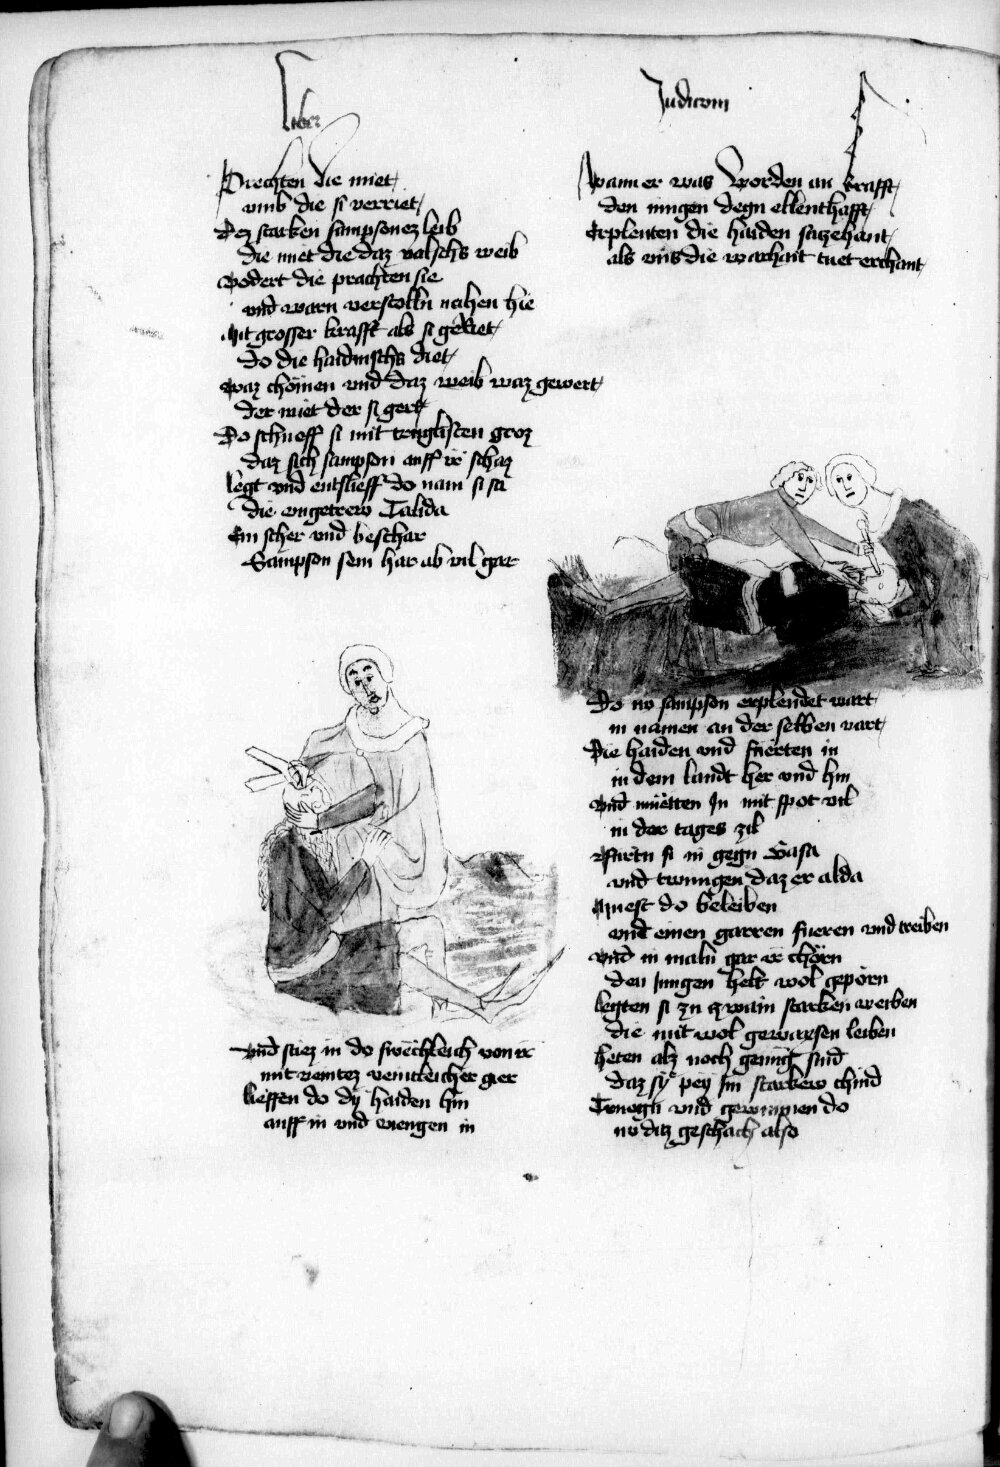 Liber
Prechten die miet
vmb die si verriet
Dez starken sampsonez leib
die miet die daz valschs weib
vodert die prachten sie
vnd warn verstolln nahen hie
Mit grosser krafft als si geriet
Do die haidnischs diet
waz chömen vnd daz weib waz gewert
der miet der si gert
Do schueff si mit truglisten groz
daz sich sampson auff ir schaz
legt vnd entslieff do nam si sa
die vngetrew Dalida
Ein scher vnd beschar
Sampson sein har ab vil gar
vnd stiez in do swechleich von ir
mit veintez veintleicher gier
lieffen do dy haiden hin
auff in vnd viengen in
Judicum
Wann er was worden an krafft
den iungen degn ellenthafft
Erplenten die haiden sazehant
als vns die warhait tuet erchant
Do nv sampson erplendet wart
in namen an der selben vart
Die haiden vnd fuerten in
in dem landt her vnd hin
vnd müeten In mit spot vil
in der tages zil
furtn si in gegn Gasa
vnd twungen daz er alda
muest do beleiben
vnd einen garren fueren vnd treiben
vnd in maln gar ir chörn
den Jungen helt wol geporn
legten si zu zwain starken weiben
die mit wol gewaxsen leiben
heten alz noch genug sind
daz sy pey im starkew chind
Truogn vnd gewunnen do
nv daz geschach also